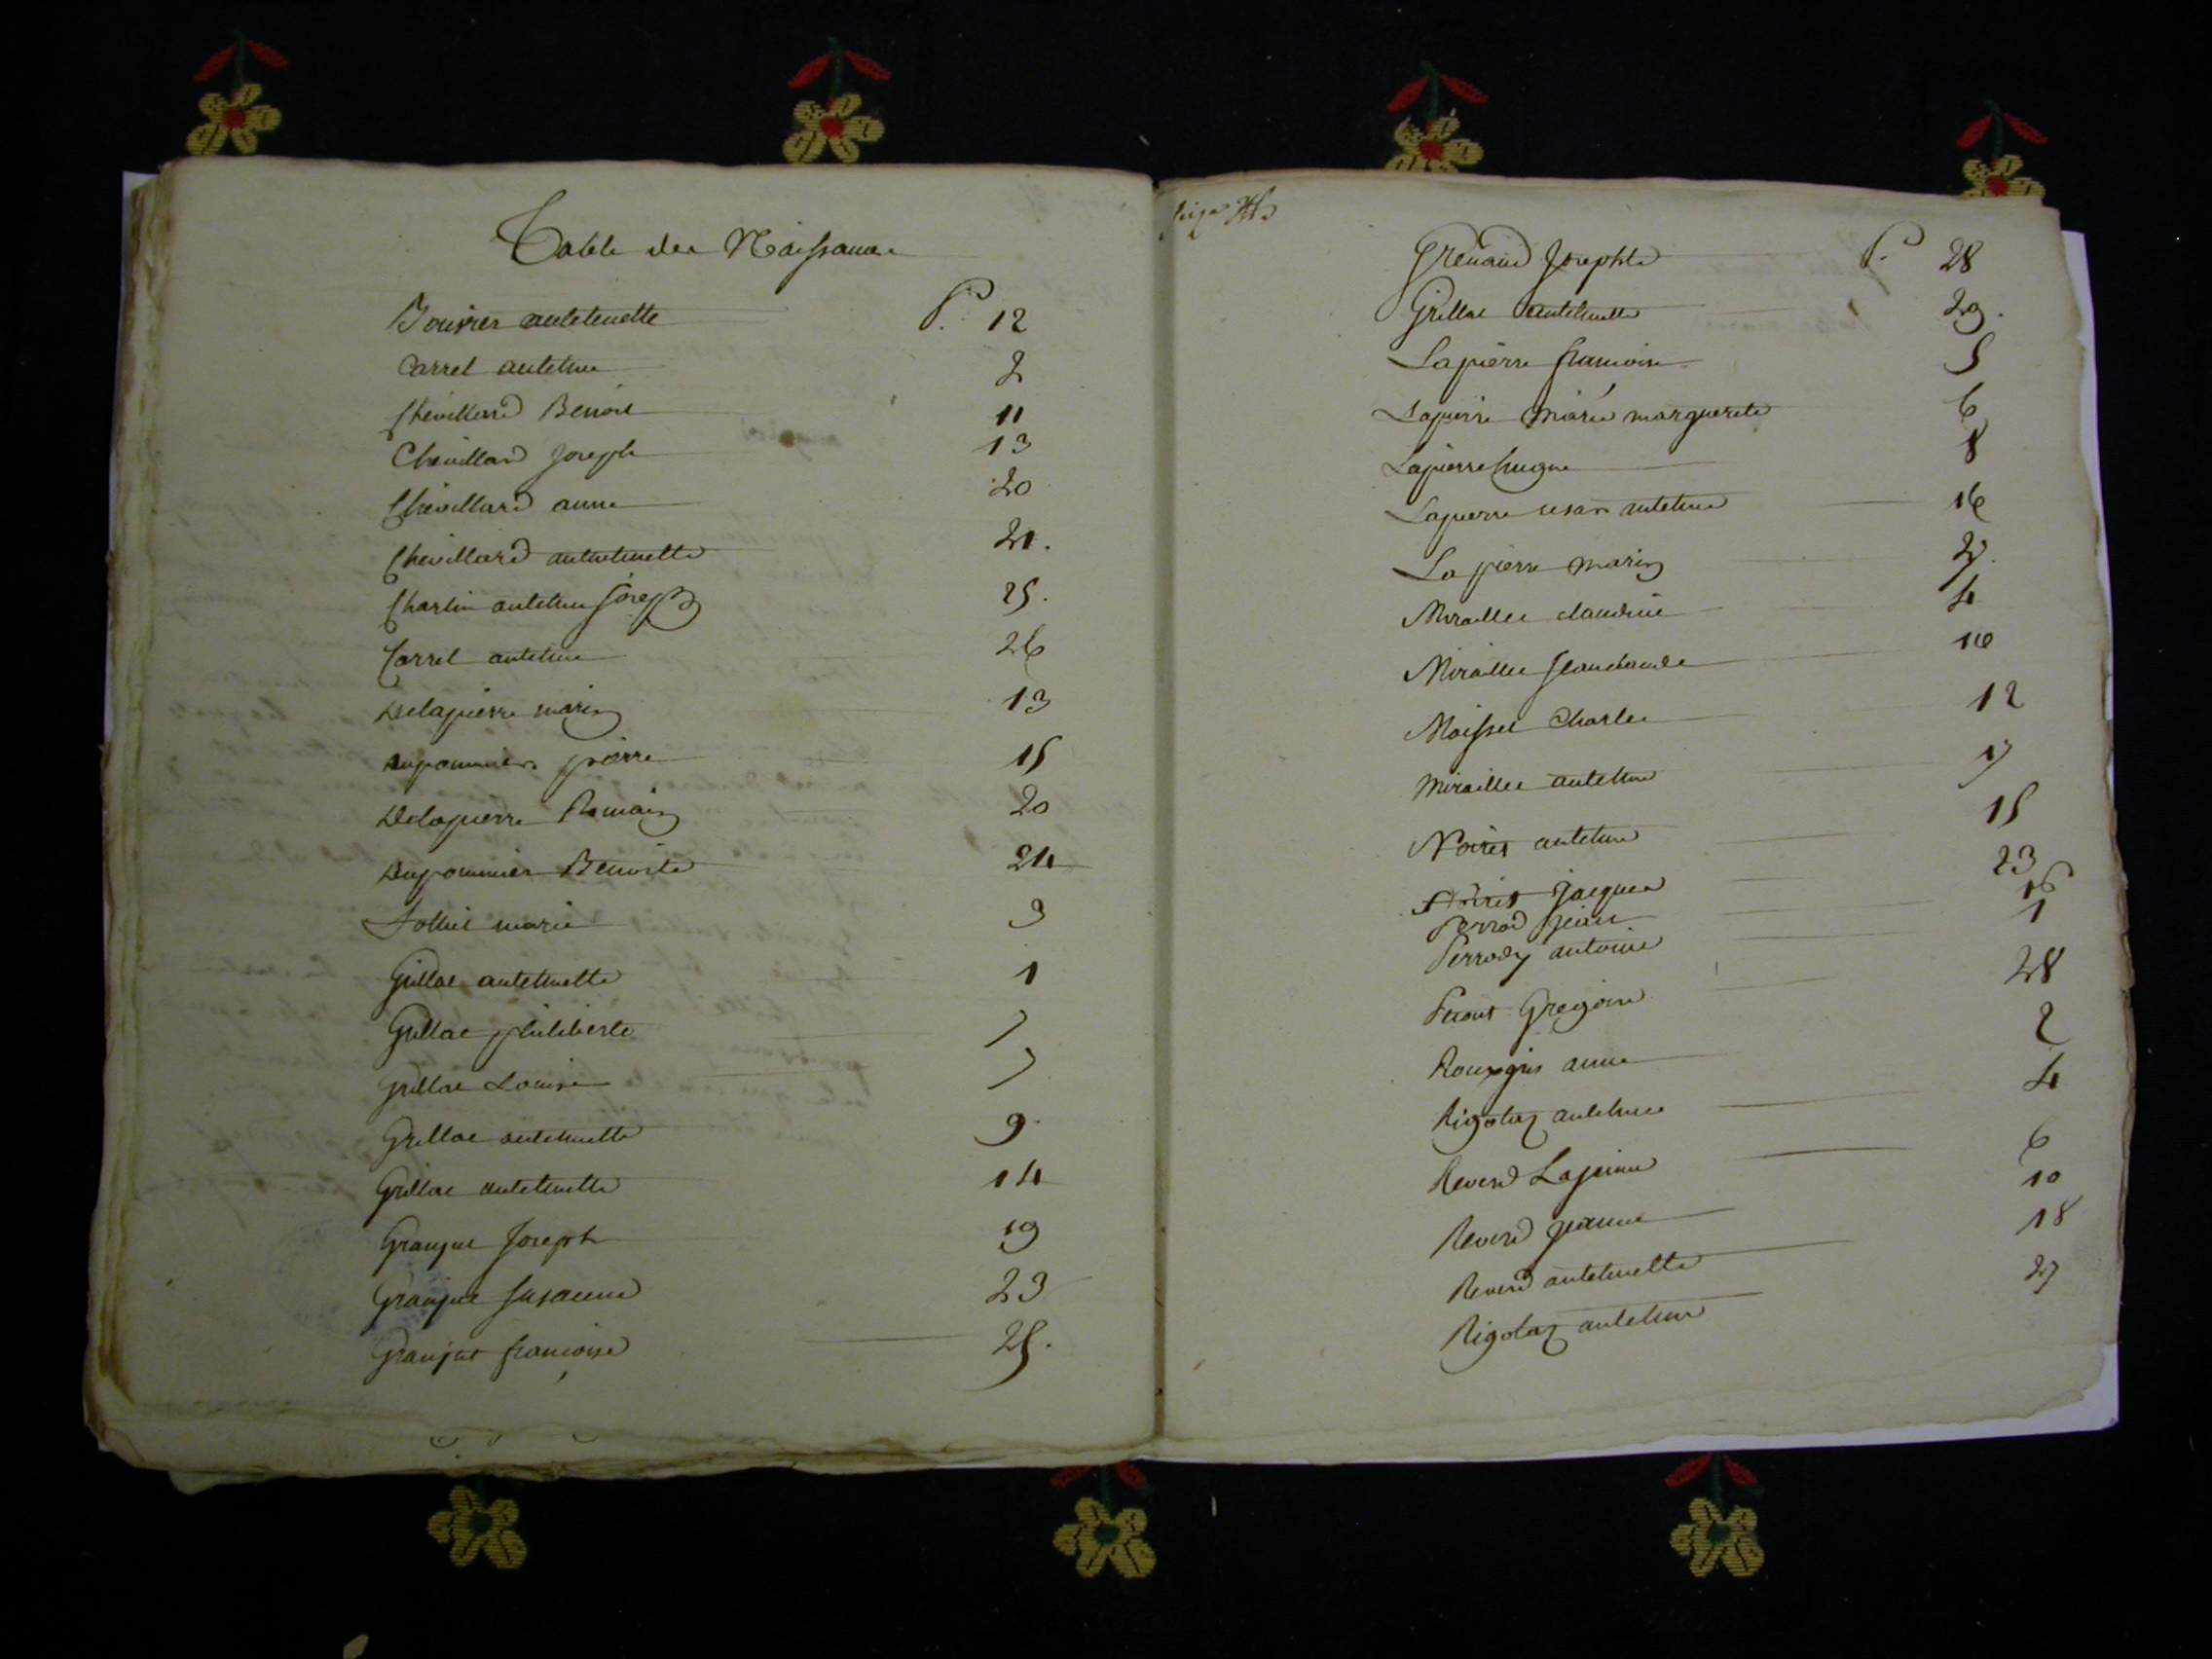 Table des Naissances
Bouvier antetenette P. 12
Carrel antetme 2
Chevillard Benoit 11
Chevillard Joseph 13
Chevillard anne 20
Chevillard antetenette 21.
Charlin antetme Joseph 25.
Carrel antetme 26
Delapierre marin 13
dupommier pierre 15
Delapierre Romain 20
Dupommier Benoite 24
marie 9
Grillat antetmette 1
Grillat philiberte 7
Grillat Louise 7
Grillat antetmette 9
Grillat antetmette 14
Granjat Joseph 19
Granjat Susanne 23
Granjat francoise 25.
Grenaud Josephte P. 28
Grillat antetmette 29.
Lapierre francoise 5
Lapierre Marie marguerite 6
Lapierre hugue 8
Lapierre cesar antetme 16
La pierre marin 27.
Miraillet claudine 4
Miraillet 16
Moissel Charles 12
Miraillet antetme 17
Noiret antetme 15
Noiret Jacques 23
Perrod Jean 16
Perrody antoine 1
Gregoire 28
Rouxgris anne 2
Rigotaz antetme 4
Reverd 6
Reverd Jeanne 10
Reverd antetmette 18
Rigotaz antetme 27